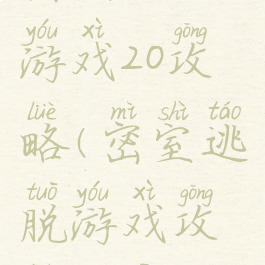 yóu xì gōng
游戏20攻
lüè mì shì táo
略(密室逃
tuō yóu xì gōng
脱游戏攻